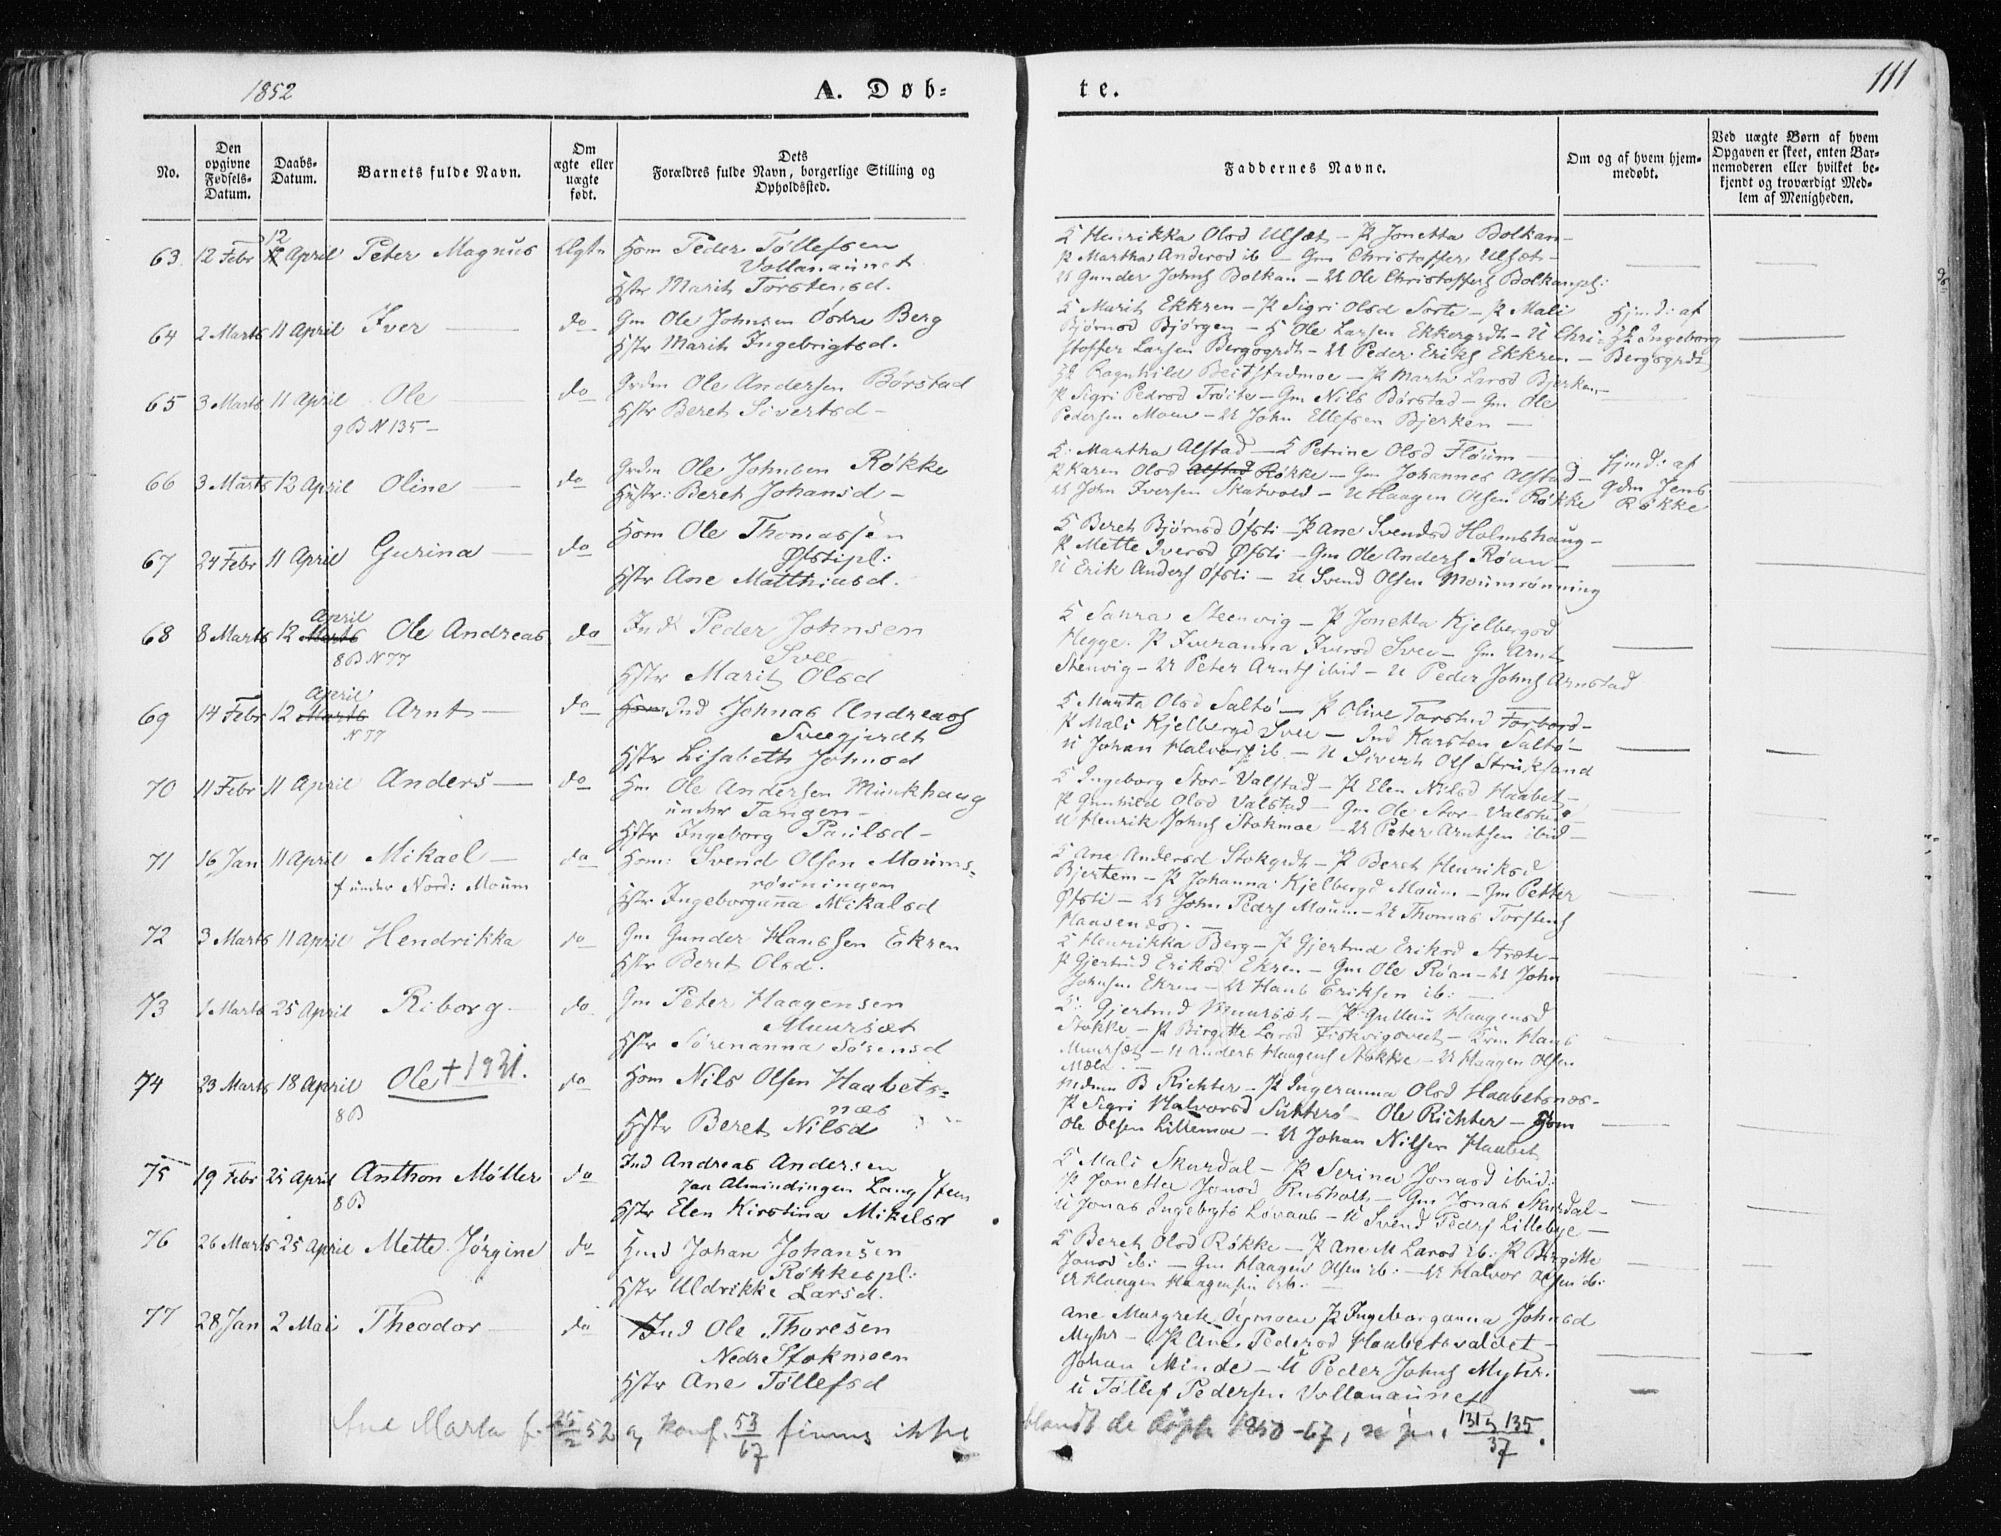 1852
A. Døb-
te.
111
No.
Den opgivne Fødsels-Datum.
Daabs-Datum.
Barnets fulde Navn.
Om ægte eller uægte født.
Dets
Forældres fulde Navn, borgerlige Stilling og Opholdssted.
Faddernes Navne.
Om og af hvem hjem-medøbt.
Ved uægte Børn af hvem Opgaven er skeet, enten Bar-nemoderen eller hvilket be-kjendt og troværdigt Med-lem af Menigheden.
63 12 Febr 12 April Peter Magnus Ægte Hsm Peder Tøllefsen
Vollanaunet
Hstr Marit Torstensd.
K Henrikka Olsd Ulsæt - P Jonetta Bolkan -
P Martha Andersd ib - Gm Christoffer Ulsæt -
U Gunder Johns Bolkan - U Ole Christoffers Bolkanpl:
64 2 Marts 11 April Iver do Gm Ole Johnsen Østre Berg
Hstr Marit Ingebrigtsd.
K Marit Ekkren - P Sigri Olsd Sorte - P Mali
Bjørnsd Bjørgen - K Ole Larsen Ekkergrdt - U Chri-
stoffer Larsen Bergsgrdt - U Peder Eriks Ekkren -
Hjmd: af
Ingeborg
Bergsgrdt
65 3 Marts 11 April Ole do Grdm Ole Andersen Børstad
9 B N 135 -
Hstr Beret Sivertsd -
Ragnhild Beitstadmoe - P Marta Larsd Bjerken -
P Sigri Pedrsd Trøite - Gm Nils Børstad - Gm Ole
Pedersen Moen - U John Ellefsen Bjerken -
66 3 Marts 12 April Oline do Grdm Ole Johnsen Røkke
Hustr: Beret Johansd -
K: Martha Alstad - K Petrine Olsd Fløum -
P Karen Olsd Alstad Røkke - Gm Johannes Alstad -
U John Iversen Skatvold - U Haagen Olsen Røkke
Hjmd: af
gdm Jens
Røkke
67 24 Febr 11 April Gurina do Hsm Ole Thomassen
Øfstipl:
Hstr Ane Matthiasd.
K Beret Bjørnsd Øfsti - P Ane Svendsd Holmshaug -
P Mette Iversd Øfsti - Gm Ole Anders Røan -
U Erik Anders Øfsti - U Svend Olsen Moumrønning
68 8 Marts 12 Marts April Ole Andreas do Ind Peder Johnsen
8 B N 77
Svee
Hstr Marit Olsd
K Sanra Steenvig - P Jonetta Kjelbergsd
Hegge. P Iveranna Iversd Svee - Gm Arnt
Stenvig - U Peter Arnts ibid - U Peder Johns Arnstad
69 14 Febr 12 Marts April Arnt do Hsm Ind Johnas Andreas
N 77
Sveegjerdt
Hstr Lisabeth Johnsd
K Marta Olsd Saltø - P Olive Torstnd Forbord -
P Mali Kjelbergd Svee - Ind Karsten Saltø -
U Johan Halvors ib - U Sivert Ols Strucksand
70 11 Febr 11 April Anders do Hm Ole Andersen Munkhaug
under Tangen -
Hstr Ingeborg Paulsd -
K Ingeborg Stor-Valstad - P Elen Nilsd Haabet -
P Gunhild Olsd Valstad - Gm Ole Stor-Valstad
U Henrik Johns Stokmoe - U Peter Arntsen ibid -
71 16 Jan 11 April Mikael do Hsm: Svend Olsen Moums-
f under Nord: Moum
rønningen
Hstr Ingeborganna Mikalsd
K Ane Andersd Stokgrdt - P Beret Henriksd
Bjertem - P Johanna Kjelbergd Moum - Gm Petter
Øfsti - U John Peders Moum - U Thomas Torstens
72 3 Marts 11 April Hendrikka do Gm Gunder Hanssen Ekren
Hstr Beret Olsd.
K Henrikka Berg - P Gjertrud Eriksd Stræte -
P Gjertrud Eriksd Ekren - Gm Ole Røan - U John
Johnsen Ekren - U Hans Eriksen ib: -
73 1 Marts 25 April Riborg do Gm Peter Haagensen
Muursæt
Hstr Sørenanna Sørensd
K: Gjertrud Muursæt - P Gullau Haagensd
Stokke - P Birgitte Larsd Fiskvigsveet - Hans
Muursæt - U Anders Haagens Stokke - U Haagen Olsen
Mæla. -
74 23 Marts 18 April Ole + 1931. do Hsm Nils Olsen Haabets-
8 B
næs
Hstr Beret Nilsd
Madme B Richter - P Ingeranna Olsd Haabetsnæs -
P Sigri Halvorsd Sutterø - Ole Richter - Hsm
Ole Olsen Lillemoe - U Johan Nilsen Haabet
75 19 Febr 25 April Anthon Møller do Ind Andreas Andersen
8 B
Jan Almindingen Langsteen
Hstr Elen Kirstina Mikelsd
K Mali Skurdal - P Serina Jonasd ibid:
P Jonetta Jonsd Rusholt - Gm Jonas Skurdal -
U Jonas Ingebrgts Løvaas - U Svend Peders Lillebye -
76 26 Marts 25 April Mette Jørgine do Johan Johansen
Røkkespl:
Hstr Uldrikke Larsd.
K Beret Olsd Røkke - P Ane M Larsd ib: P Birgitte
Jonsd ib: - Gm Haagen Olsen ib: - U Halvor Olsen ib:
U Haagen Haagensen ib: -
77 28 Jan 2 Mai Theodor do Ind Ole Thoresen
Nedr Stokmoen
Hstr Ane Tøllefsd
Ane Margrete Øymoen P Ingeborganna Johnsd
Myhr - P Ane Pedersd Haabetsvaldet -
Johan Minde - U Peder Johns Myhr.
U Tøllef Pedersen Vollanaunet
Ane Marta f. 26/2 52 og konf. 53/67 finnes ikke
blandt de døpte 1850-67, 131 og 135/37.